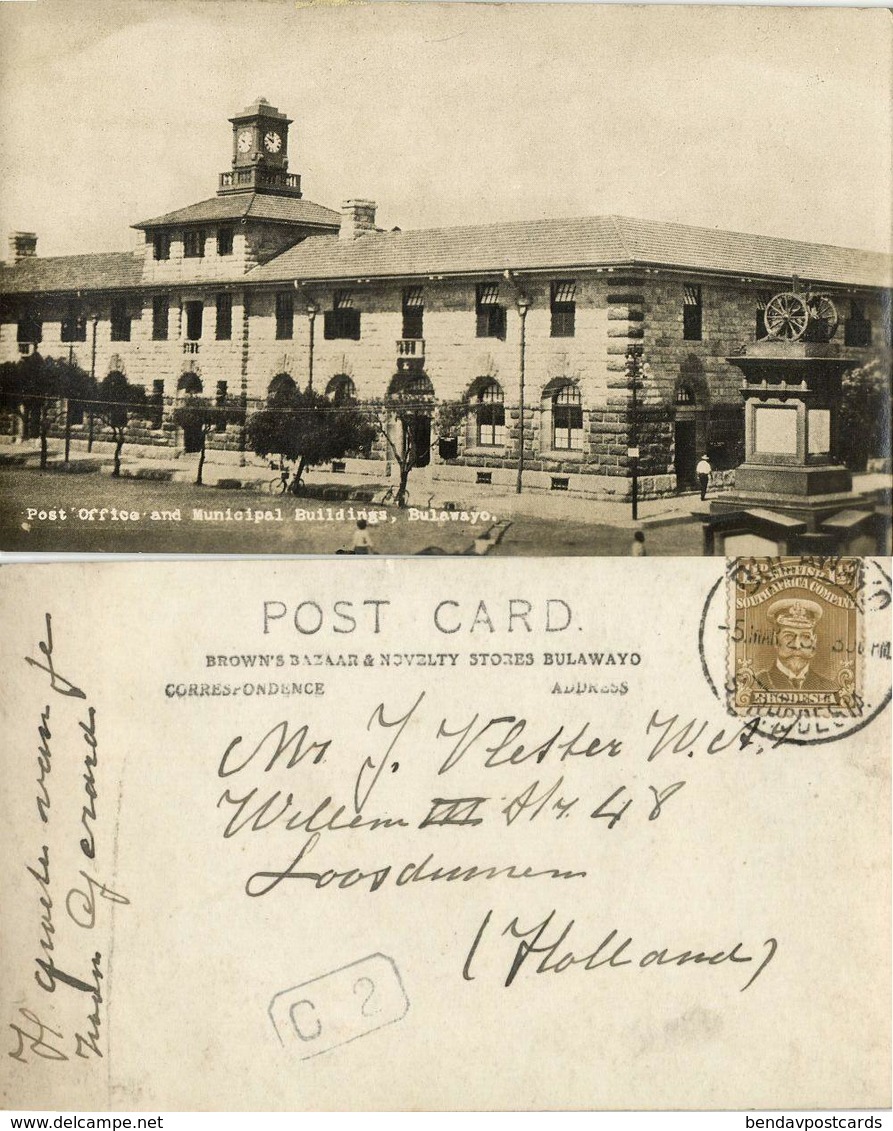 Post Office and Municipal Buildings, Bulawayo.
POST CARD.
BROWN'S BAZAAR & NOVELTY STORES BULAWAYO
CORRESPONDENCE ADDRESS
BRITISH
SOUTH AFRICA COMPANY
RHODESIA
BULAWAYO
5 MAR 23 3 00 PM
S. RHODESIA
Mr J. Vletter W.A.
Willem III Str. 48
Loosduinen
(Holland)
H. groeten van je
Gerard
C 2
delcampe.net
bendavpostcards